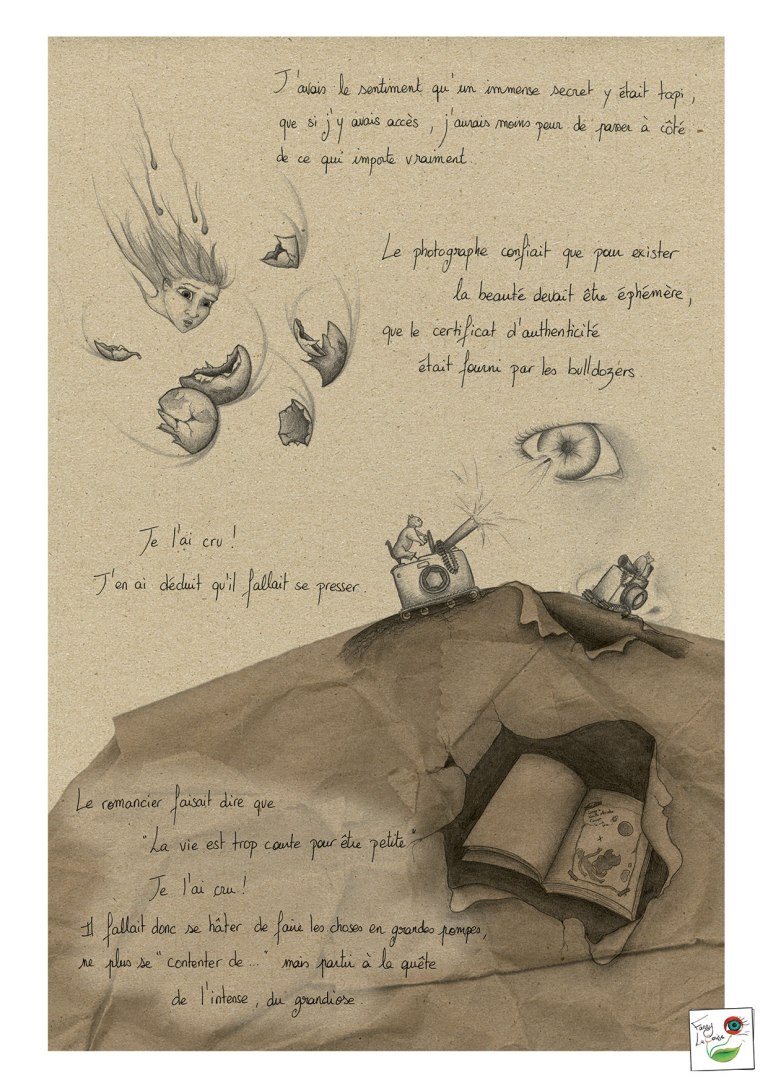 J'avais le sentiment qu'un immense secret y était tapi,
que si j'y avais accès, j'aurais moins peur de passer à côté
de ce qui importe vraiment.
Le photographe confiait que pour exister
la beauté devait être éphémère,
que le certificat d'authenticité
était fourni par les bulldozers.
Je l'ai cru !
J'en ai déduit qu'il fallait se presser.
Le romancier faisait dire que
"La vie est trop courte pour être petite"
Je l'ai cru !
Il fallait donc se hâter de faire les choses en grandes pompes,
ne plus se "contenter de ..." mais partir à la quête
de l'intense, du grandiose.
Fanny